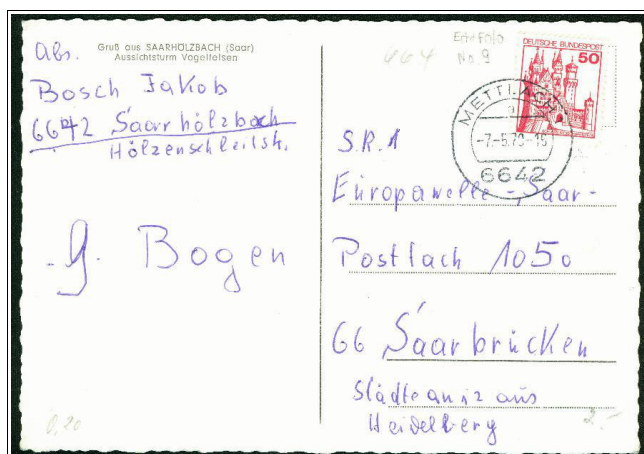 Gruß aus SAARHÖLZBACH (Saar)
Aussichtsturm Vogelfelsen
Abs.
Bosch Jakob
6642 Saarhölzbach
G. Bogen
0,20
664
No. 9
DEUTSCHE BUNDESPOST
50
METTLACH
a
-7.-5.79-15
6642
S.R.1
Europawelle - Saar -
Postfach 1050
66 Saarbrücken
Städte aus
Heidelberg
2.-